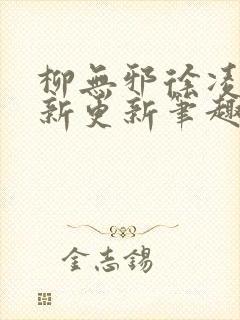 柳無邪徐凌
新更新筆趣
金志錫